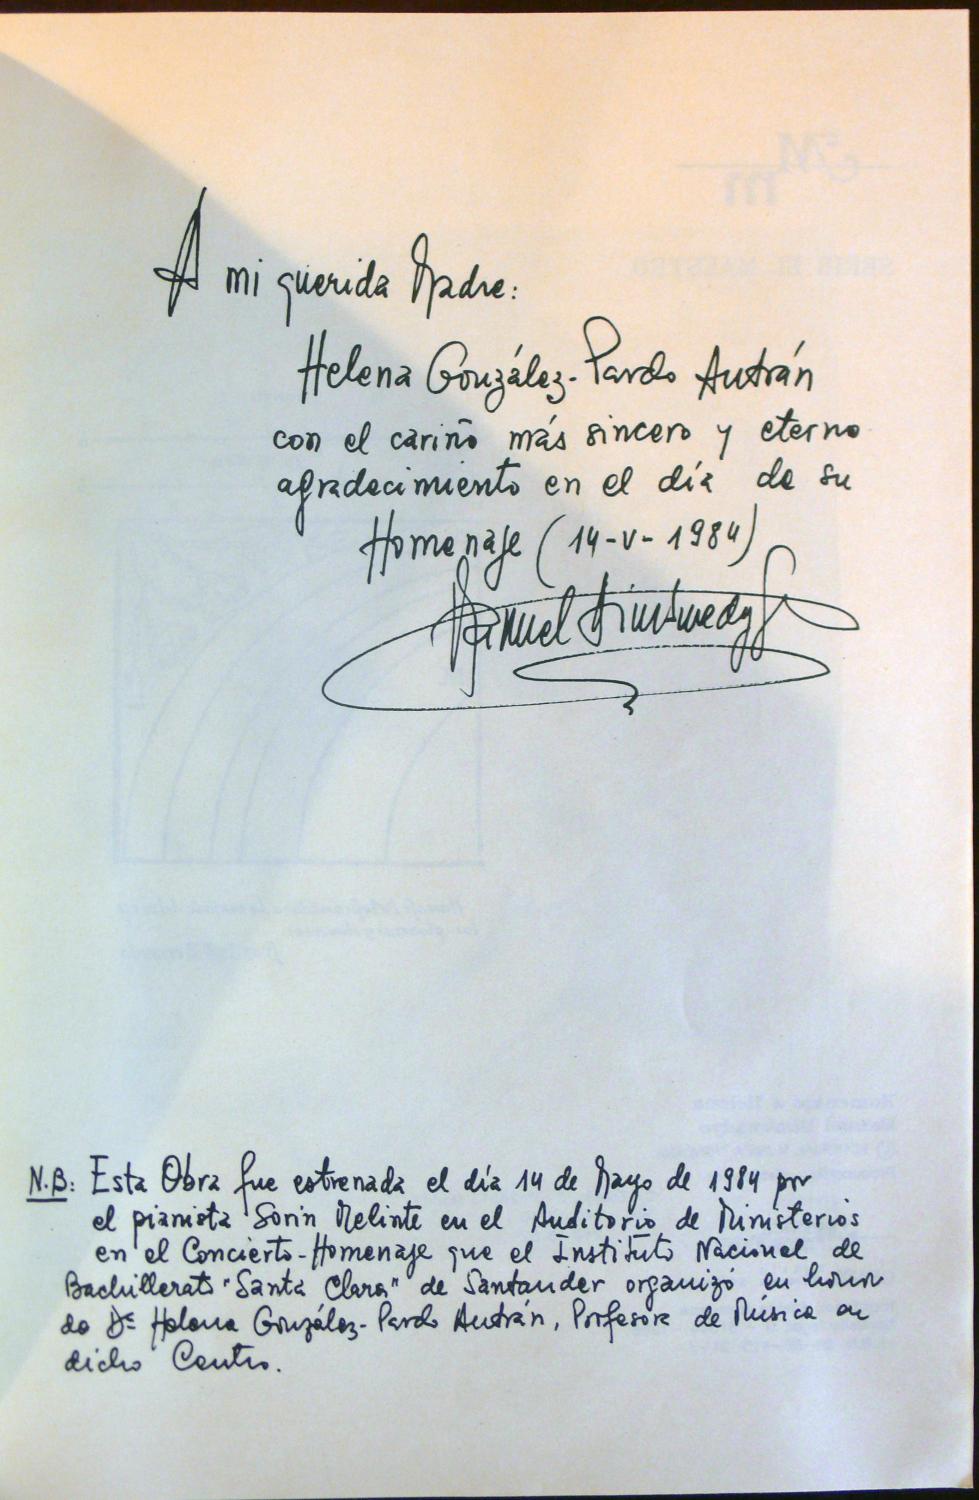 A mi querida Madre:
Helena González-Pardo Autrán
con el cariño más sincero y eterno
agradecimiento en el día de su
Homenaje (14-V-1984)
Manuel
N.B: Esta Obra fue estrenada el día 14 de Mayo de 1984 por
el pianista Sorin Melinte en el Auditorio de Ministerios
en el Concierto-Homenaje que el Instituto Nacional de
Bachillerato "Santa Clara" de Santander organizó en honor
de Dª Helena González-Pardo Autrán, Profesora de Música en
dicho Centro.